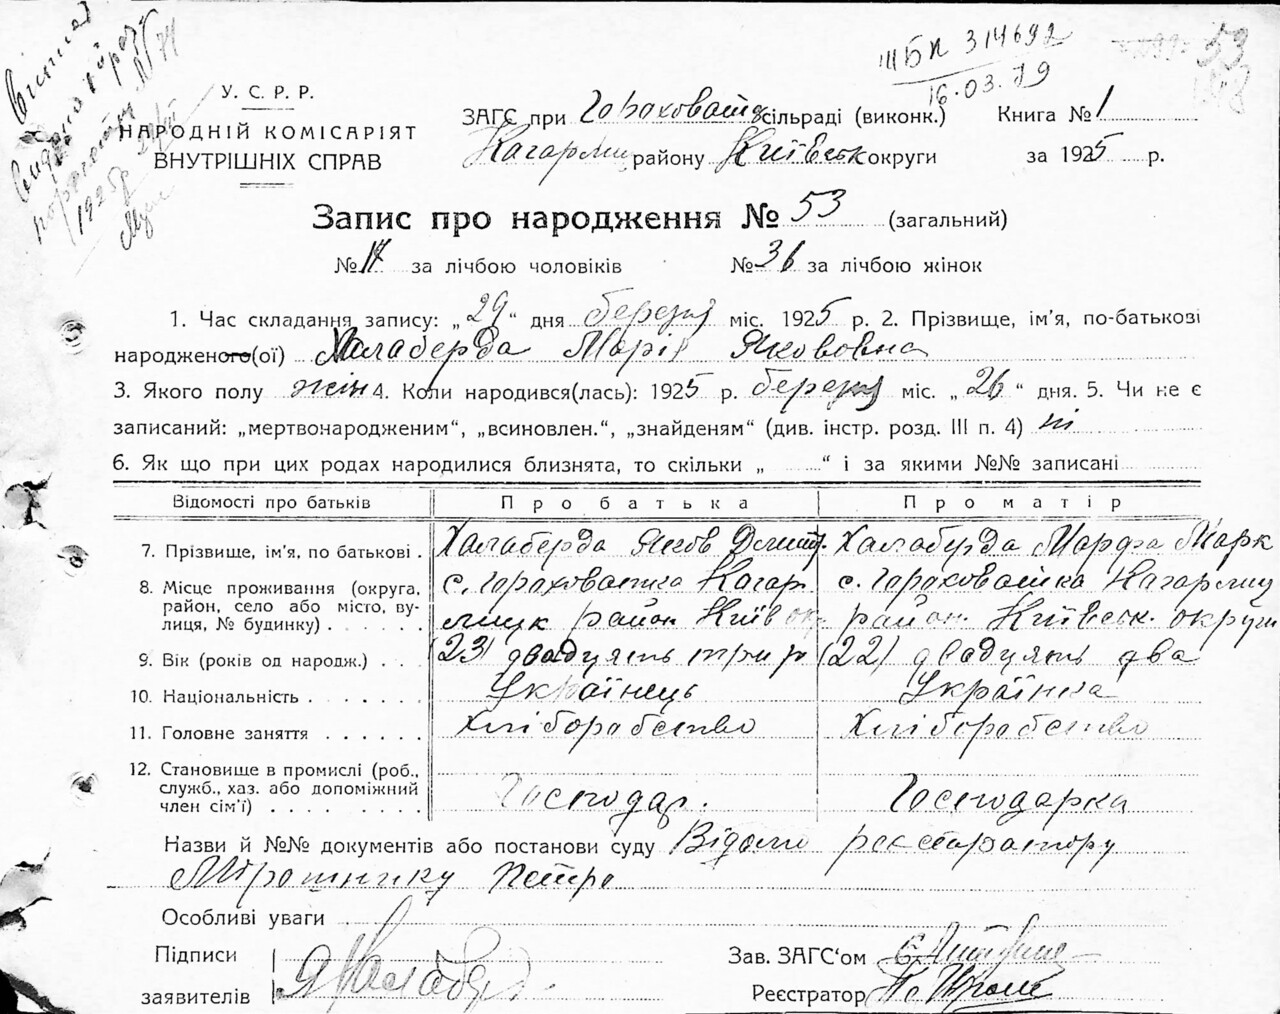 ІІІБК 314692
16.03.79
53
У. С. Р. Р.
НАРОДНІЙ КОМІСАРІЯТ
ВНУТРІШНІХ СПРАВ
ЗАГС при Гороховатск сільраді (виконк.) Книга № 1
Кагарлиц району Київськ округи за 1925 р.
Запис про народження № 53 (загальний)
№ 17 за лічбою чоловіків № 36 за лічбою жінок
1. Час складання запису: „29“ дня березня міс. 1925 р. 2. Прізвище, ім'я, по-батькові
народженого(ої) Халаберда Марія Якововна
3. Якого полу жін 4. Коли народився(лась): 1925 р. березня міс. „26“ дня. 5. Чи не є
записаний: „мертвонародженим“, „всиновлен.“, „знайденям“ (див. інстр. розд. III п. 4) ні
6. Як що при цих родах народилися близнята, то скільки „ “ і за якими №№ записані
Відомості про батьків Про батька Про матір
7. Прізвище, ім'я, по батькові . Халаберда Яков Дмитр. Халаберда Марфа Марк
8. Місце проживання (округа, район, село або місто, вулиця, № будинку) . с. Гороховатка Кагарлицк район Київ ок. с. Гороховатка Кагарлиц район. Київськ. округи
9. Вік (років од народж.) . . . (23) двадцять три р (22) двадцять два
10. Національність . Українець Українка
11. Головне заняття . Хліборобство Хліборобство
12. Становище в промислі (роб., служб., хаз. або допоміжний член сім'ї) . Господар. Господарка
Назви й №№ документів або постанови суду Відомо реєстратору
Мірошнику Петро
Особливі уваги
Підписи
заявителів Я Халабер
Зав. ЗАГС‘ом
Реєстратор